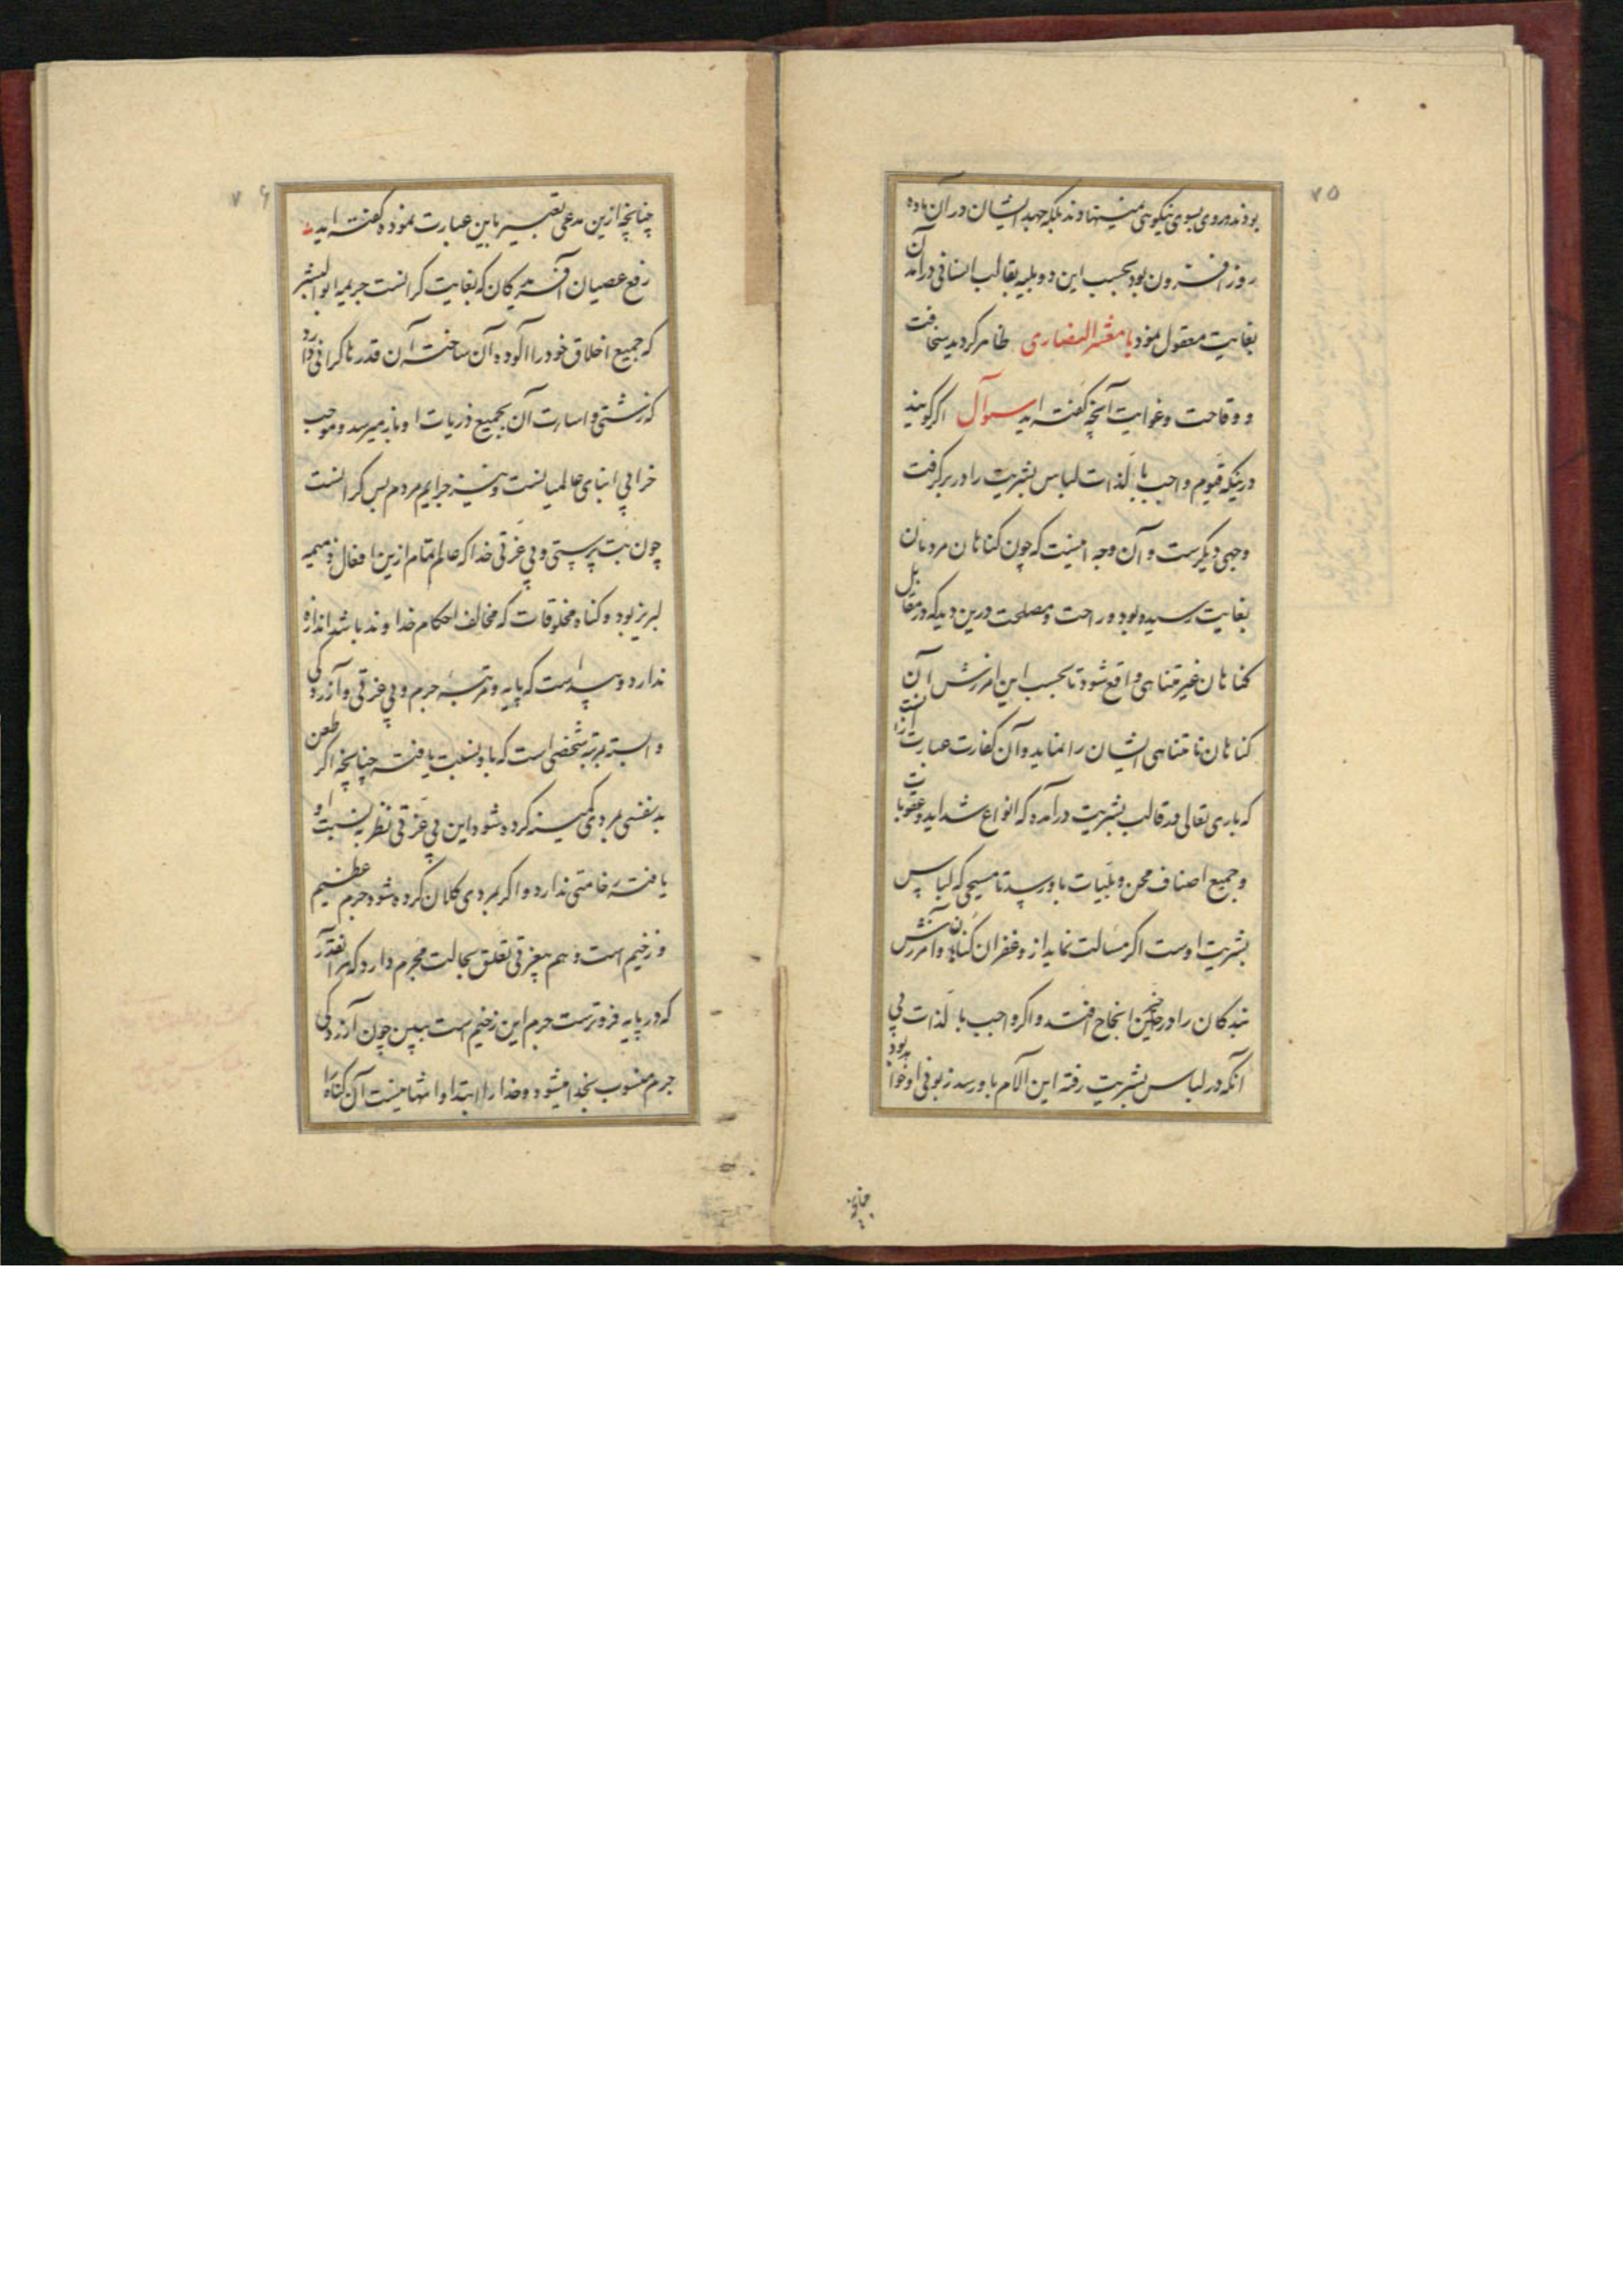 ۷۵
بودند و روی بسوی نیکویی نمینهاوند بلکه جهد ایشان در آن ماده
روز افزون بود بحسب این دو بلیه بقالب انسانی در آمدن
بغایت معقول نمود یا معشر النصاری ظاهر گردید سخافت
و وقاحت و غوایت آنچه گفته اید سوآل اگر گویند
درینکه قیوم واجب بالذات لباس بشریت را در بر گرفت
وجهی دیگرست و آن وجه اینست که چون گناهان مردمان
بغایت رسیده بود و راحت و مصلحت درین دید که در مقابل
گناهان غیر متناهی واقع شود تا بحسب این امرزش آن
گناهان نا متناهی ایشان را نماید و آن کفارت عبارت ازانست
که باری تعالی در قالب بشریت درآمده که انواع شداید و عقوبات
و جمیع اصناف محن و بلیات باو رسد تا مسیحی که لباس
بشریت اوست اگر مسالت نماید ازو غفران گناهان و آمرزش
بندگان را در حین انجاح افتد و اگر واجب بالذات بی
آنکه در لباس بشریت رفته این آلام باو رسد زبونی او خواهد بود
چنانچه
۷۶
چنانچه ازین مدعی تعبیر باین عبارت نموده گفته اید
رفع عصیان آفریدگان که بغایت گرانست جریمه ابو البشر
که جمیع اخلاق خود را آلوده آن ساخت آن قدرها گرانی دارد
که زشتی و اسارت آن بجمیع ذریات او باز میرسد و موجب
خرابی ابنای عالمیانست و نیز جرایم مردم بس گرانست
چون بت پرستی و بی عزتی خدا که عالم تمام ازین افعال ذمیمه
لبریز بود و گناه مخلوقات که مخالف احکام خداوند باشد اندازه
ندارد و پیداست که پایه و مرتبۀ جرم و بی عزتی و آزردگی
وابسته مرتبۀ شخصی است که باو نسبت یافته چنانچه اگر طعن
بد نفسی بمردی کمینه کرده شود این بی عزتی نظر به نسبت او
یافته وخامتی ندارد و اگر بمردی کلان کرده شود جرم عظیم
و زخیم است و هم بیعزتی تعلق بحالت مجرم دارد که هر آنقدر
که در پایه فروترست جرم این زخیم است پس چون آزردگی
جرم منسوب بخدا میشود و خدا را ابتدا و انتها نیست آن گناه را